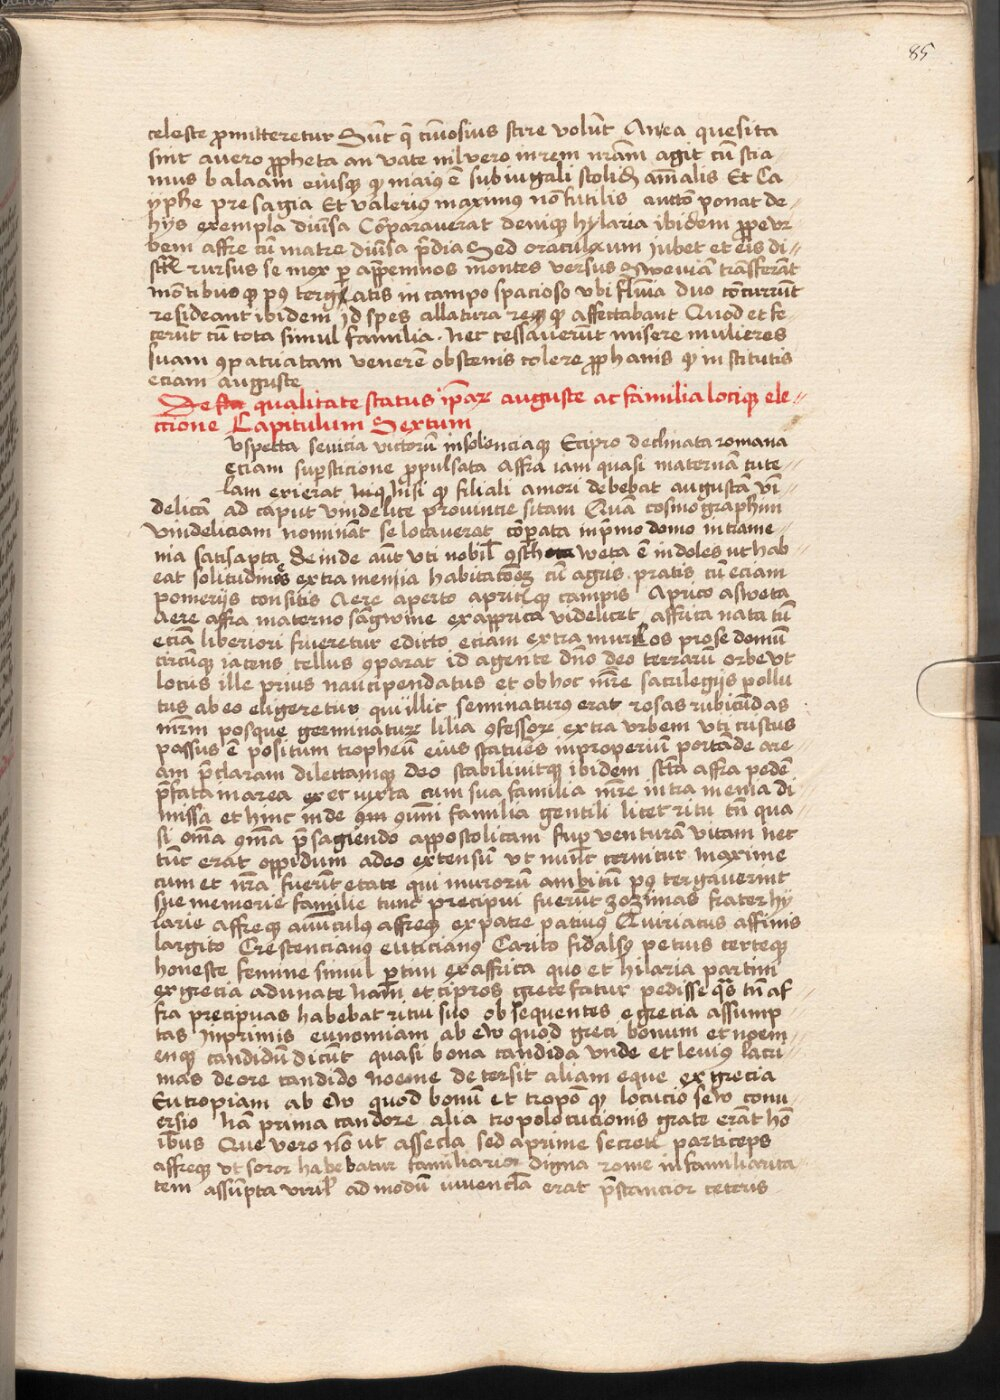 85
celeste ꝓmitteretur Sūt q̄ curiosius scire volūt An ea quesita
sint a vero ꝓpheta an vate nil vero in rem nr̄am agit cū scia
mus balaam eiusqꝫ ꝙ maiꝰ ē subiugali stolid aīalis Et Ca
yphe presagia Et valeriꝰ maximꝰ nō futilis auctō ponat de
hijs exempla diu̾sa Cōparauerat deniqꝫ hylaria ibidem ꝓpe vr
bem affre cū matre diu̾sa p̄dia Sed oraculum iubet et eis di
rursus se mox ꝑ appeninos montes versus Sweuiā trāsferāt
mōtibusqꝫ pꝰ tergatis in campo spacioso vbi flūia duo cōcurrūt
resideant ibidem id spes allatura reqꝫ ꝙ affectabant Quod et fe
cerūt cū tota simul familia. nec cessauerūt misere mulieres
suam ꝯpatuatam venerē obscenis colere ꝓphanis ꝙ institutis
eciam auguste
De qualitate status ip̄arꝝ auguste ac familia lociqꝫ ele
ctione Capitulum Sextum
Vspecta seuicia victorū insolenciaqꝫ E cipro declinata romana
eciam sup̱sticione ꝓpulsata Affra iam quasi maternā tute
lam exierat nisi ꝙ filiali amori debebat augustā vī
delicā ad caput vindelice prouincie sitam Quā cosmographim
vindeliciam nomināt se locauerat cōp̱ata in p̱mo domo intra me
nia satis apta deinde aūt vti nobil weta ē indoles ut hab
eat solitudinis extra menia habitacōeꝫ cū agris pratis cū eciam
pomerijs consitis Aere aperto apricisqꝫ campis Aprico asweta
Aere affra materno sāgwine ex apprica videlicet affrica nata tū
eciā liberiori frueretur edicto eciam extra muros pro se domū
circūqꝫ iacens tellus ꝯparat id agente dn̄o deo terrarū orbe vt
locus ille prius naucipendatus et ob hoc m̄re sacrilegijs pollu
tus ab eo eligeretur qui illic seminaturꝰ erat rosas rubicūdas
mr̄m posque germinaturꝝ lilia ꝯfessorꝝ extra vrbem vti custus
passus ē positum tropheū eius statuens improperiū porta de ore
am p̄claram dilectamqꝫ deo stabiliuitqꝫ ibidem sc̄ta affra pedē
p̄fata in area et iuxta cum sua familia m̄re intra menia di
missa et hinc inde ꝯm oūni familia gentili licet ritu tn̄ qua
si om̄a ꝯm̄a p̄sagiendo appostolicam sup̱ venturā vitam nec
tūc erat oppidum adeo extensū vt nūnc cernitur maxime
cum et nr̄a fuerūt etate qui murorū ambitū pꝰ tergauerint
sue memorie familie tunc precipui fuerūt zozimas frater hy
larie affreqꝫ auūculꝰ affreqꝫ ex patre patruꝰ Quiriacus affinis
largito Crescencianꝰ euticianꝰ Carito fidalsꝰ petrus certeqꝫ
honeste femine simul ex affrica quo et hilaria partim
ex grecia adunate nam et cipros grece fatur pedisse q̄s tn̄ af
fra precipuas habebat ritu suo obsequentes e grecia assump
tas inprimis eunomiam ab ew quod greci bonum et noem
enqꝫ candidū dicūt quasi bona candida vnde et leuiꝰ lacri
mas de ore candido noeme detersit aliam eque ex grecia
Eutropiam ab ew quod bonū et tropos ꝙ locucio sew conu
ersio nā prima candore alia tropo locucionis grate erāt hō
ibus Que vero nō ut assecla sed a prime secreti particeps
affreqꝫ vt soror habebatur familiarior digna rome in familiarita
tem assūpta viril̄ admodū iuuencl̄a erat p̄stancior ceteris